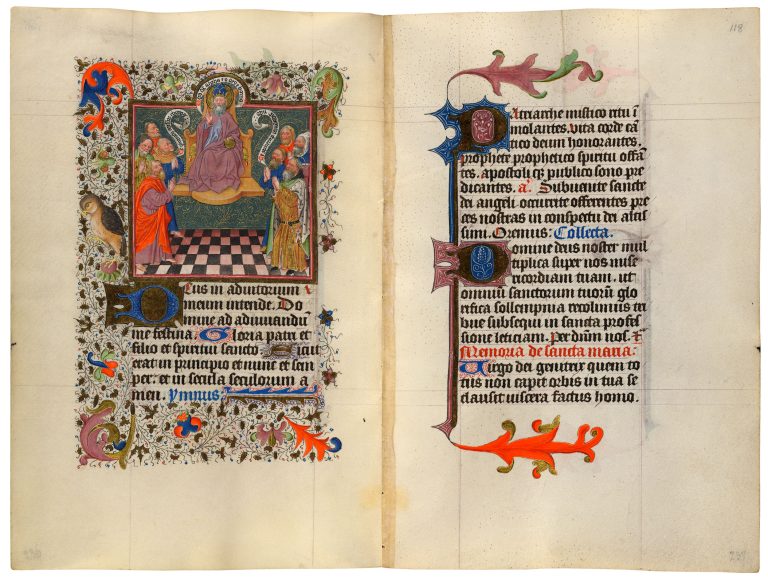 Deus in adiutorium
meum intende. Do
mine ad adiuuandu
me festina. Gloria patri et
filio et spiritui sancto Sicut
erat in principio et nunc et sem
per: et in secula seculorum a
men. ymnus:
118
Patriarche mistico ritu i
molantes. vita corde ca
tico deum honorantes.
prophete prophetico spiritu offan
tes. apostoli publico sono pre
dicantes. a. Subuenite sancte
dei angeli occurite offerentes pre
ces nostras in conspectu dei altis
simi. Oremus: Collecta.
Domine deus noster mul
tiplica super nos mise
ricordiam tuam. ut
omniu sanctorum tuoru glo
rifica sollempnia recolimus tri
bue subsequi in sancta profes
sione leticiam. Per dnm nos.
Memoria de sancta maria:
Uirgo dei genitrix quem to
tus non capit orbis in tua se
clausit uiscera factus homo.